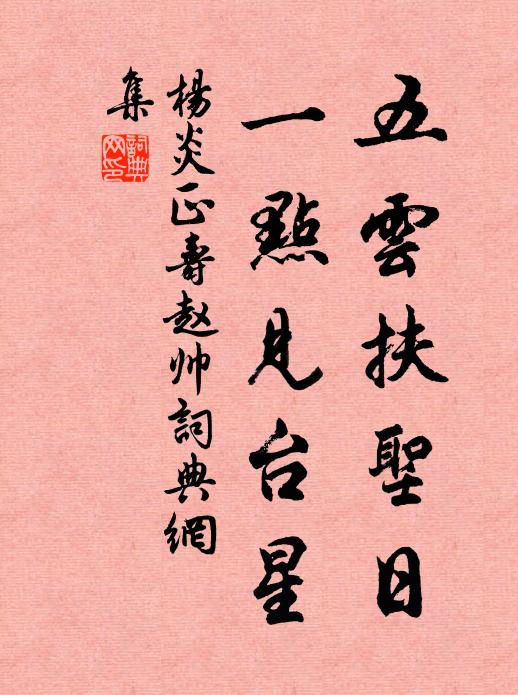 五雲扶聖日
一點見台星
楊炎正壽赵帅詞典網
集
詞典
网印